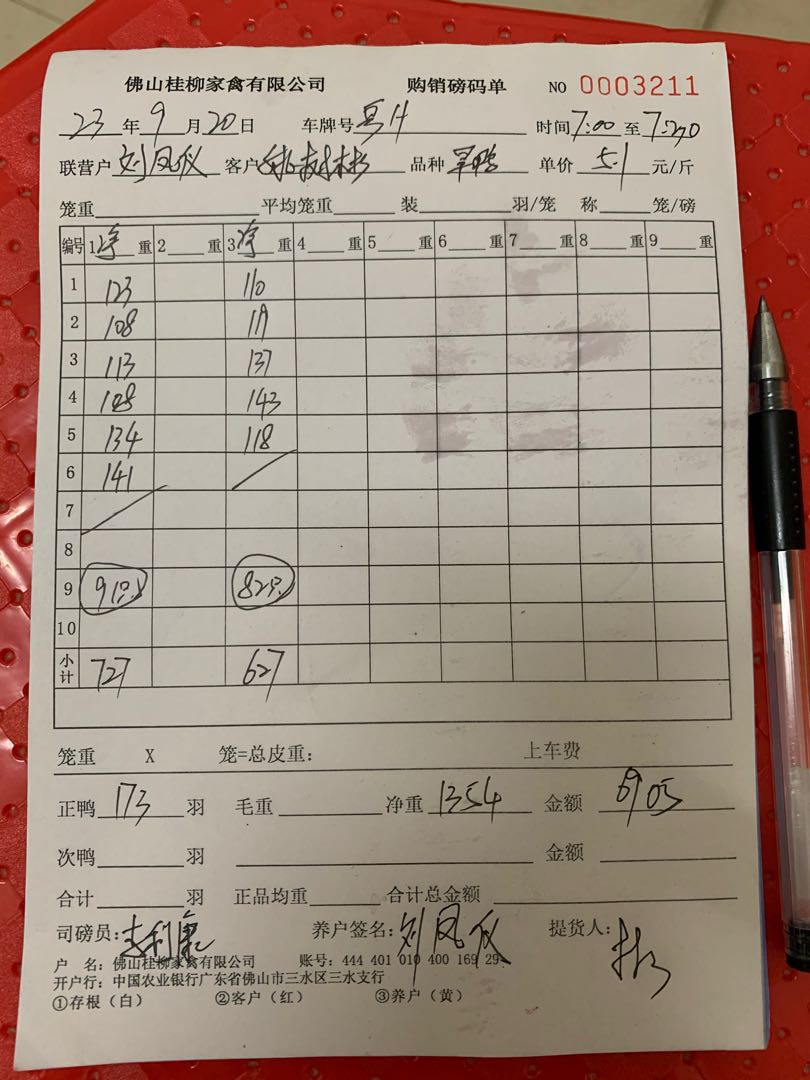 佛山桂柳家禽有限公司 购销磅码单 NO 0003211
23 年 9 月 20 日 车牌号 时间 7:00 至
联营户 刘凤仪 客户 品种 单价 5.1 元/斤
笼重 平均笼重 装 羽/笼 称 笼/磅
编号 1 净 重 2 重 3 净 重 4 重 5 重 6 重 7 重 8 重 9 重
1 123 110
2 108 119
3 113 137
4 108 143
5 134 118
6 141
7
8
9 91只 82只
10
小计 727 627
笼重 X 笼=总皮重: 上车费
正鸭 173 羽 毛重 净重 1354 金额 6905
次鸭 羽 金额
合计 羽 正品均重 合计总金额
司磅员: 养户签名: 刘凤仪 提货人:
户 名: 佛山桂柳家禽有限公司 账号: 444 401 010 400 169 29
开户行: 中国农业银行广东省佛山市三水区三水支行
①存根(白) ②客户(红) ③养户(黄)